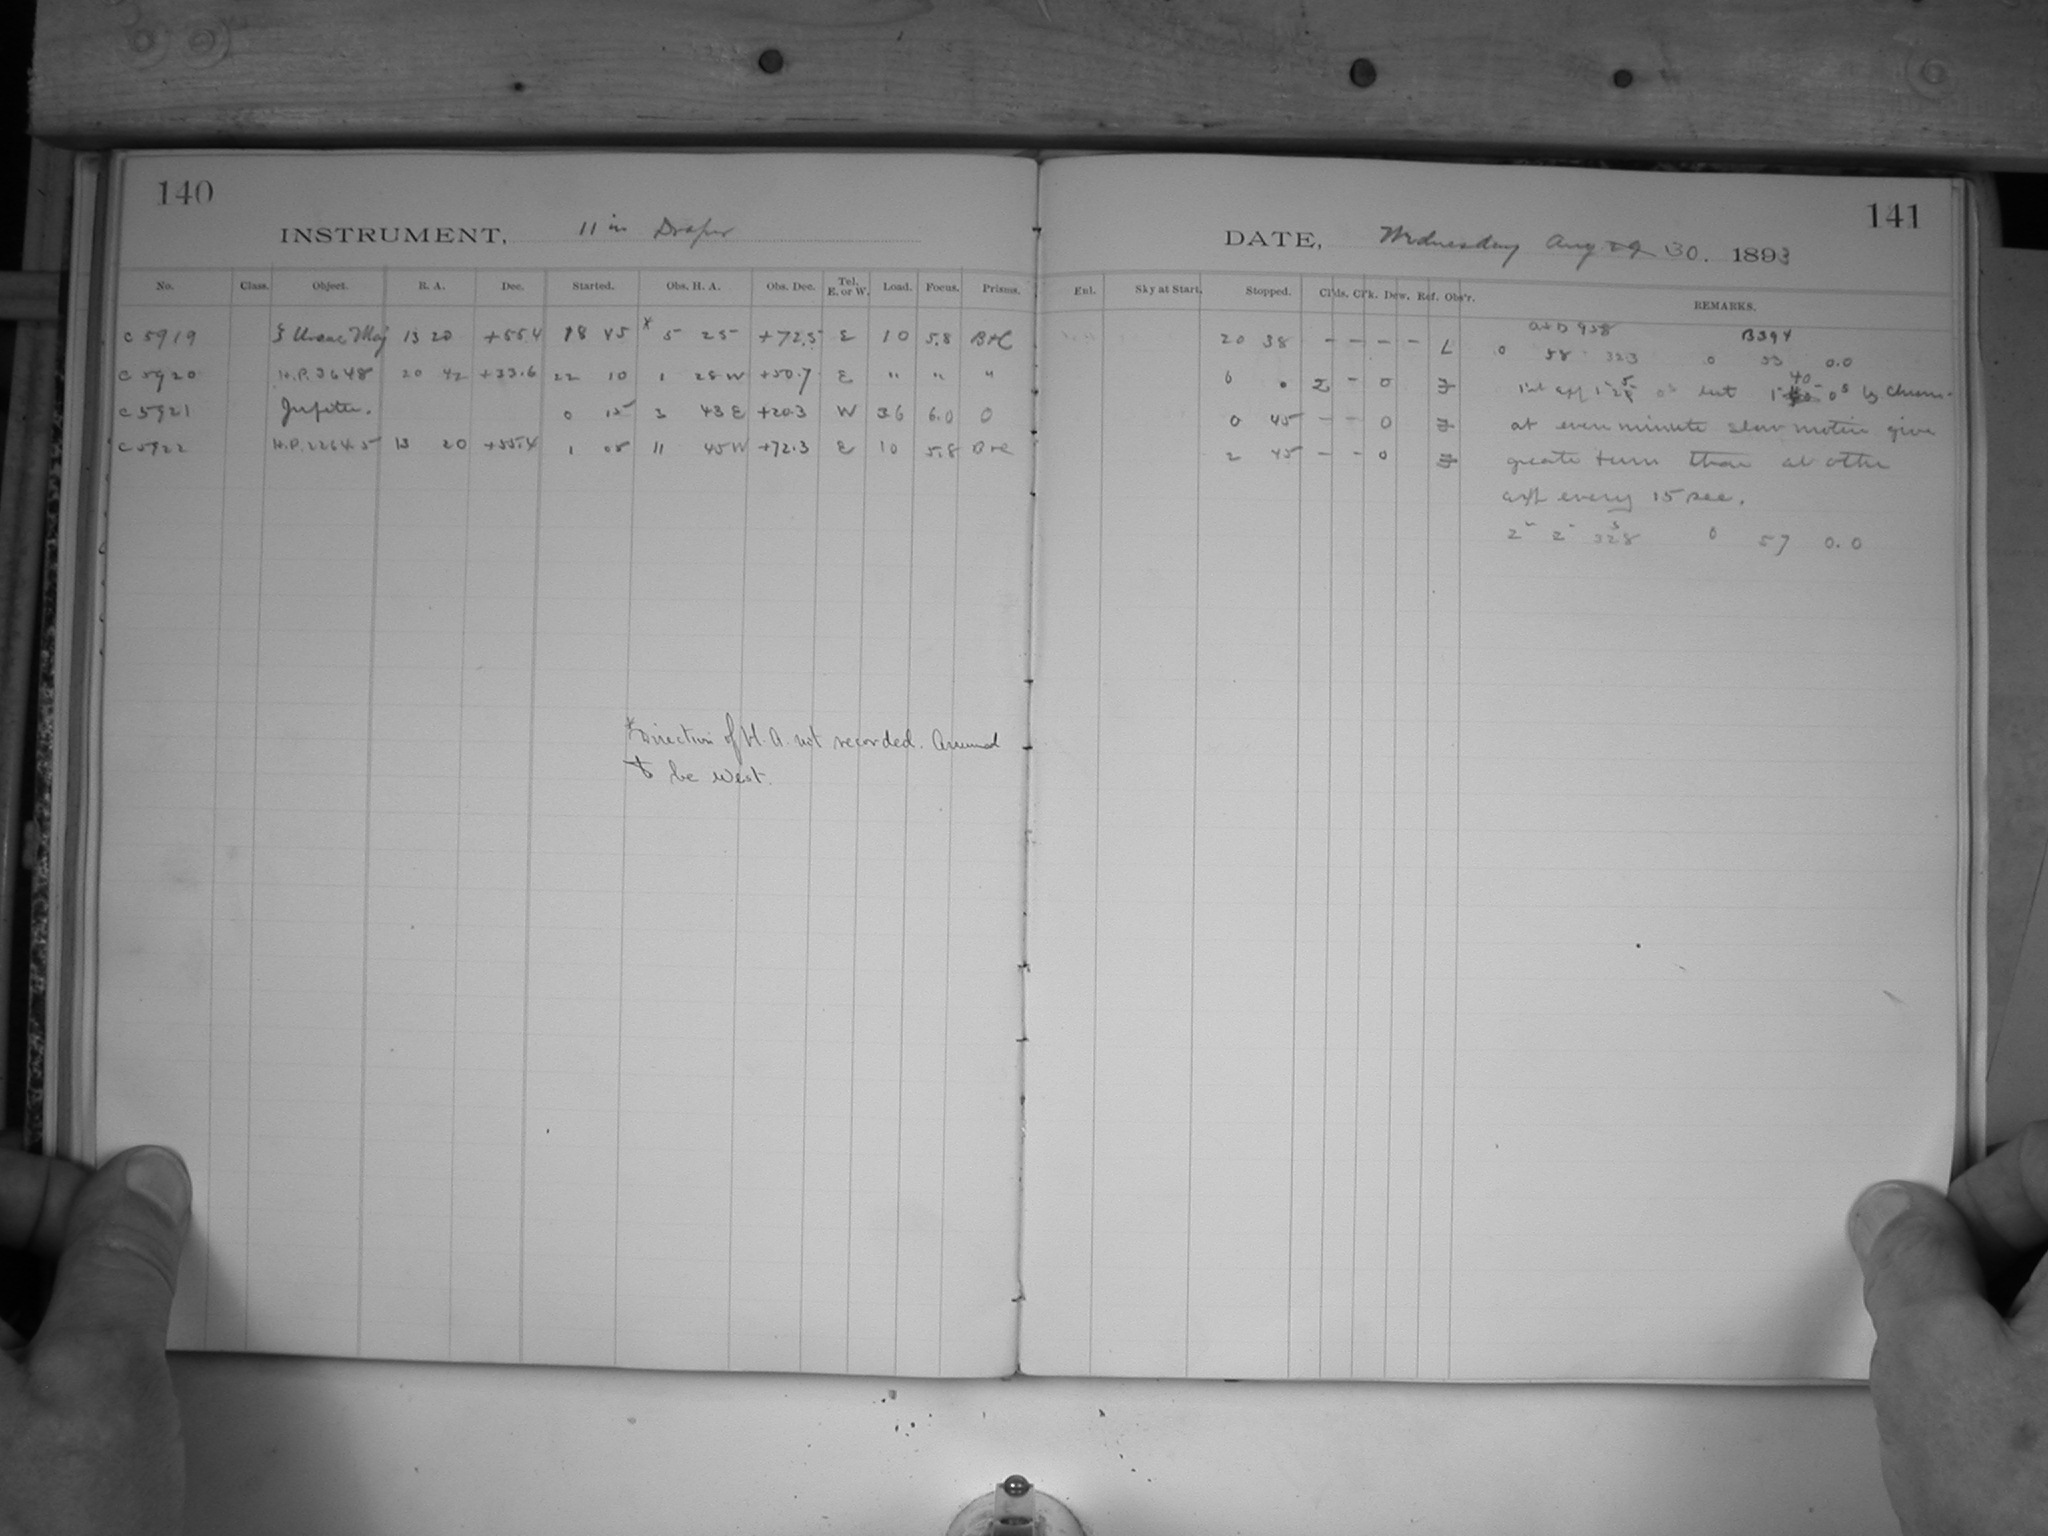 140
INSTRUMENT, 11 in Draper
No. Class. Object. R. A. Dec. Started. Obs. H. A. Obs. Dec. Tel. E. or W. Load. Focus. Prisms.
C 5919 ξ Ursae Maj 13 20 +55.4 18 45 * 5 25 +72.5 E 10 5.8 B+C
C 5920 H.P. 3648 20 42 +33.6 22 10 1 28 W +50.7 E " " "
C 5921 Jupiter. 0 15 3 43 E +20.3 W 36 6.0 0
C 5922 H.P. 2264.5 13 20 +55.4 1 05 11 45 W +72.3 E 10 5.8 B+C
*Direction of H. A. not recorded. Assumed
to be west.
141
DATE, Wednesday Aug 30. 1893
Eul. Sky at Start. Stopped. Cl'ds. Cl'k. Dew. Ref. Obs'r. REMARKS.
A+D 938 B394
20 38 - - - - L 0 58 323 0 55 0.0
0 0 Σ - 0 but by Chron.
0 45 - - 0 at even minute slow motion give
2 45 - - 0 greater turn than at other
every 15 sec.
2 2 328 0 57 0.0